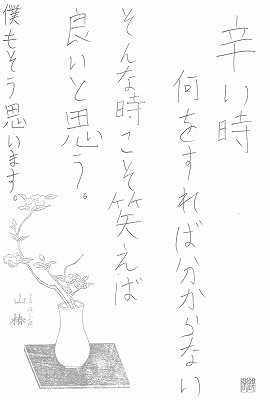 辛い時
何をすれば分からない
そんな時こそ笑えば
良いと思う。
僕もそう思います。
山椿